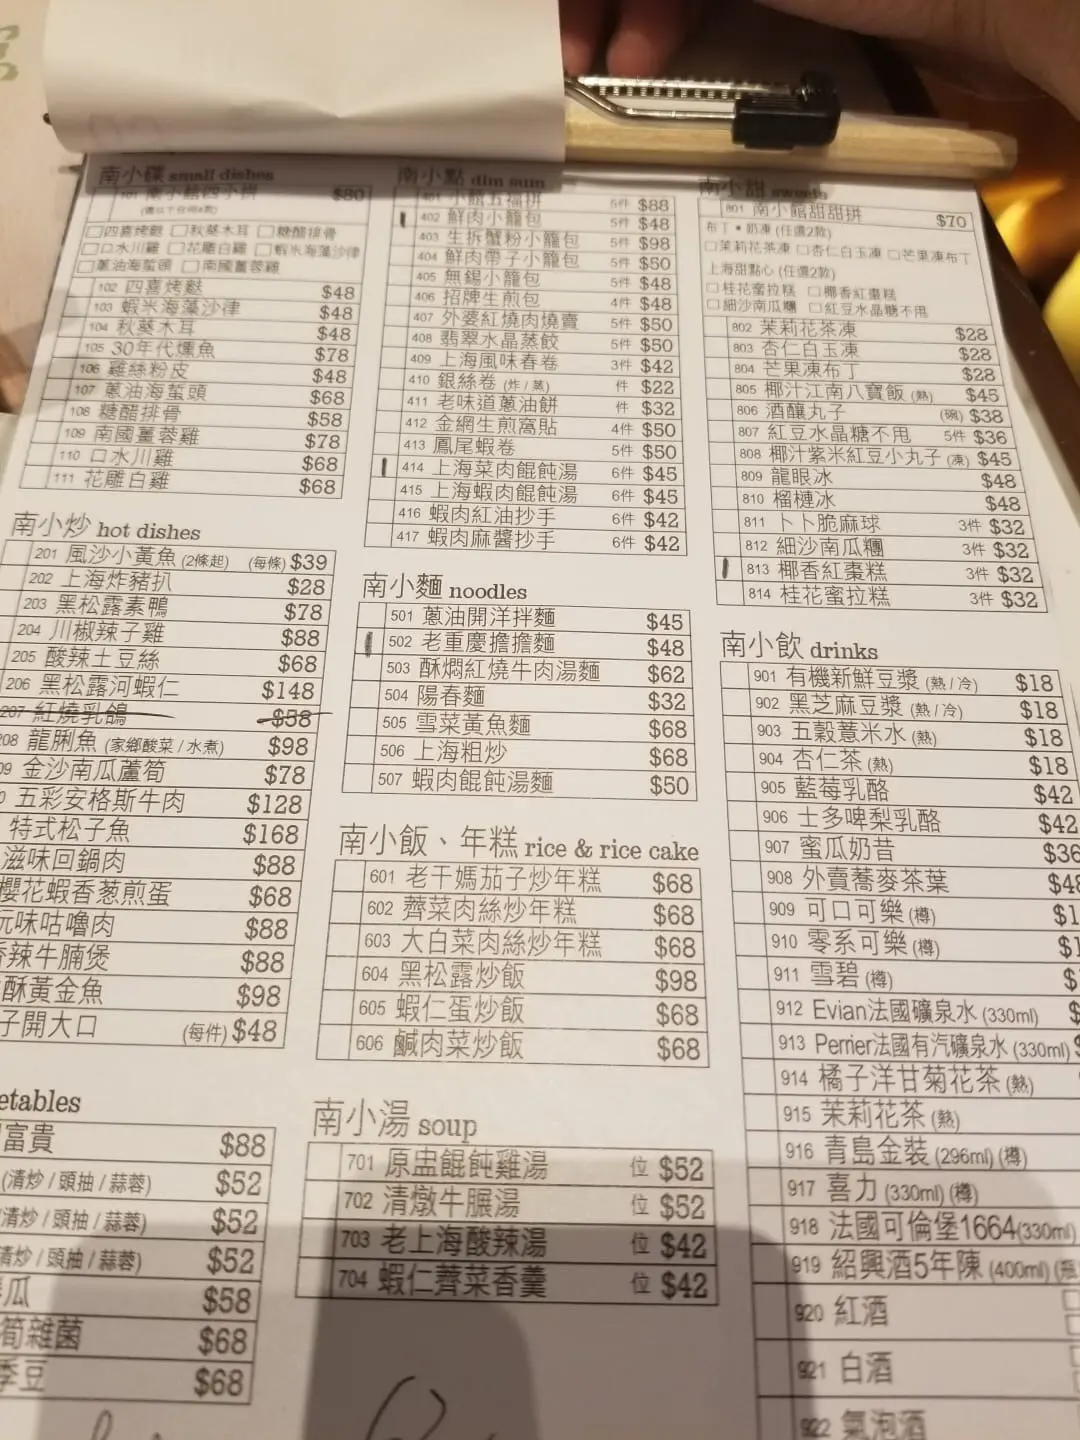 南小碟 small dishes
101 南小館四小拼 $80
(選以下任何4款)
四喜烤麩 秋葵木耳 糖醋排骨
口水川雞 花雕白雞 蝦米海藻沙律
蔥油海蜇頭 南國薑蓉雞
102 四喜烤麩 $48
103 蝦米海藻沙律 $48
104 秋葵木耳 $48
105 30年代燻魚 $78
106 雞絲粉皮 $48
107 蔥油海蜇頭 $68
108 糖醋排骨 $58
109 南國薑蓉雞 $78
110 口水川雞 $68
111 花雕白雞 $68
南小炒 hot dishes
201 風沙小黃魚 (2條起) (每條) $39
202 上海炸豬扒 $28
203 黑松露素鴨 $78
204 川椒辣子雞 $88
205 酸辣土豆絲 $68
206 黑松露河蝦仁 $148
207 紅燒乳鴿 $58
208 龍脷魚 (家鄉酸菜 / 水煮) $98
09 金沙南瓜蘆筍 $78
0 五彩安格斯牛肉 $128
特式松子魚 $168
滋味回鍋肉 $88
櫻花蝦香葱煎蛋 $68
玩味咕嚕肉 $88
香辣牛腩煲 $88
酥黃金魚 $98
子開大口 (每件) $48
etables
富貴 $88
(清炒 / 頭抽 / 蒜蓉) $52
清炒 / 頭抽 / 蒜蓉) $52
清炒 / 頭抽 / 蒜蓉) $52
瓜 $58
筍雜菌 $68
季豆 $68
南小點 dim sum
401 小館五福拼 5件 $88
402 鮮肉小籠包 5件 $48
403 生拆蟹粉小籠包 5件 $98
404 鮮肉帶子小籠包 5件 $50
405 無錫小籠包 5件 $48
406 招牌生煎包 4件 $48
407 外婆紅燒肉燒賣 5件 $50
408 翡翠水晶蒸餃 5件 $50
409 上海風味春卷 3件 $42
410 銀絲卷 (炸 / 蒸) 件 $22
411 老味道蔥油餅 件 $32
412 金網生煎窩貼 4件 $50
413 鳳尾蝦卷 5件 $50
414 上海菜肉餛飩湯 6件 $45
415 上海蝦肉餛飩湯 6件 $45
416 蝦肉紅油抄手 6件 $42
417 蝦肉麻醬抄手 6件 $42
南小麵 noodles
501 蔥油開洋拌麵 $45
502 老重慶擔擔麵 $48
503 酥燜紅燒牛肉湯麵 $62
504 陽春麵 $32
505 雪菜黃魚麵 $68
506 上海粗炒 $68
507 蝦肉餛飩湯麵 $50
南小飯、年糕 rice & rice cake
601 老干媽茄子炒年糕 $68
602 薺菜肉絲炒年糕 $68
603 大白菜肉絲炒年糕 $68
604 黑松露炒飯 $98
605 蝦仁蛋炒飯 $68
606 鹹肉菜炒飯 $68
南小湯 soup
701 原盅餛飩雞湯 位 $52
702 清燉牛𦟌湯 位 $52
703 老上海酸辣湯 位 $42
704 蝦仁薺菜香羹 位 $42
南小甜 sweets
801 南小館甜甜拼 $70
布丁 • 奶凍 (任選2款)
茉莉花茶凍 杏仁白玉凍 芒果凍布丁
上海甜點心 (任選2款)
桂花蜜拉糕 椰香紅棗糕
細沙南瓜糰 紅豆水晶糖不甩
802 茉莉花茶凍 $28
803 杏仁白玉凍 $28
804 芒果凍布丁 $28
805 椰汁江南八寶飯 (熱) $45
806 酒釀丸子 (碗) $38
807 紅豆水晶糖不甩 5件 $36
808 椰汁紫米紅豆小丸子 (凍) $45
809 龍眼冰 $48
810 榴槤冰 $48
811 卜卜脆麻球 3件 $32
812 細沙南瓜糰 3件 $32
813 椰香紅棗糕 3件 $32
814 桂花蜜拉糕 3件 $32
南小飲 drinks
901 有機新鮮豆漿 (熱 / 冷) $18
902 黑芝麻豆漿 (熱 / 冷) $18
903 五穀薏米水 (熱) $18
904 杏仁茶 (熱) $18
905 藍莓乳酪 $42
906 士多啤梨乳酪 $42
907 蜜瓜奶昔 $36
908 外賣蕎麥茶葉 $48
909 可口可樂 (樽) $1
910 零系可樂 (樽) $1
911 雪碧 (樽) $
912 Evian法國礦泉水 (330ml) $
913 Perrier法國有汽礦泉水 (330ml) $
914 橘子洋甘菊花茶 (熱)
915 茉莉花茶 (熱)
916 青島金裝 (296ml) (樽)
917 喜力 (330ml) (樽)
918 法國可倫堡1664 (330ml)
919 紹興酒5年陳 (400ml) (瓶
920 紅酒
921 白酒
922 氣泡酒